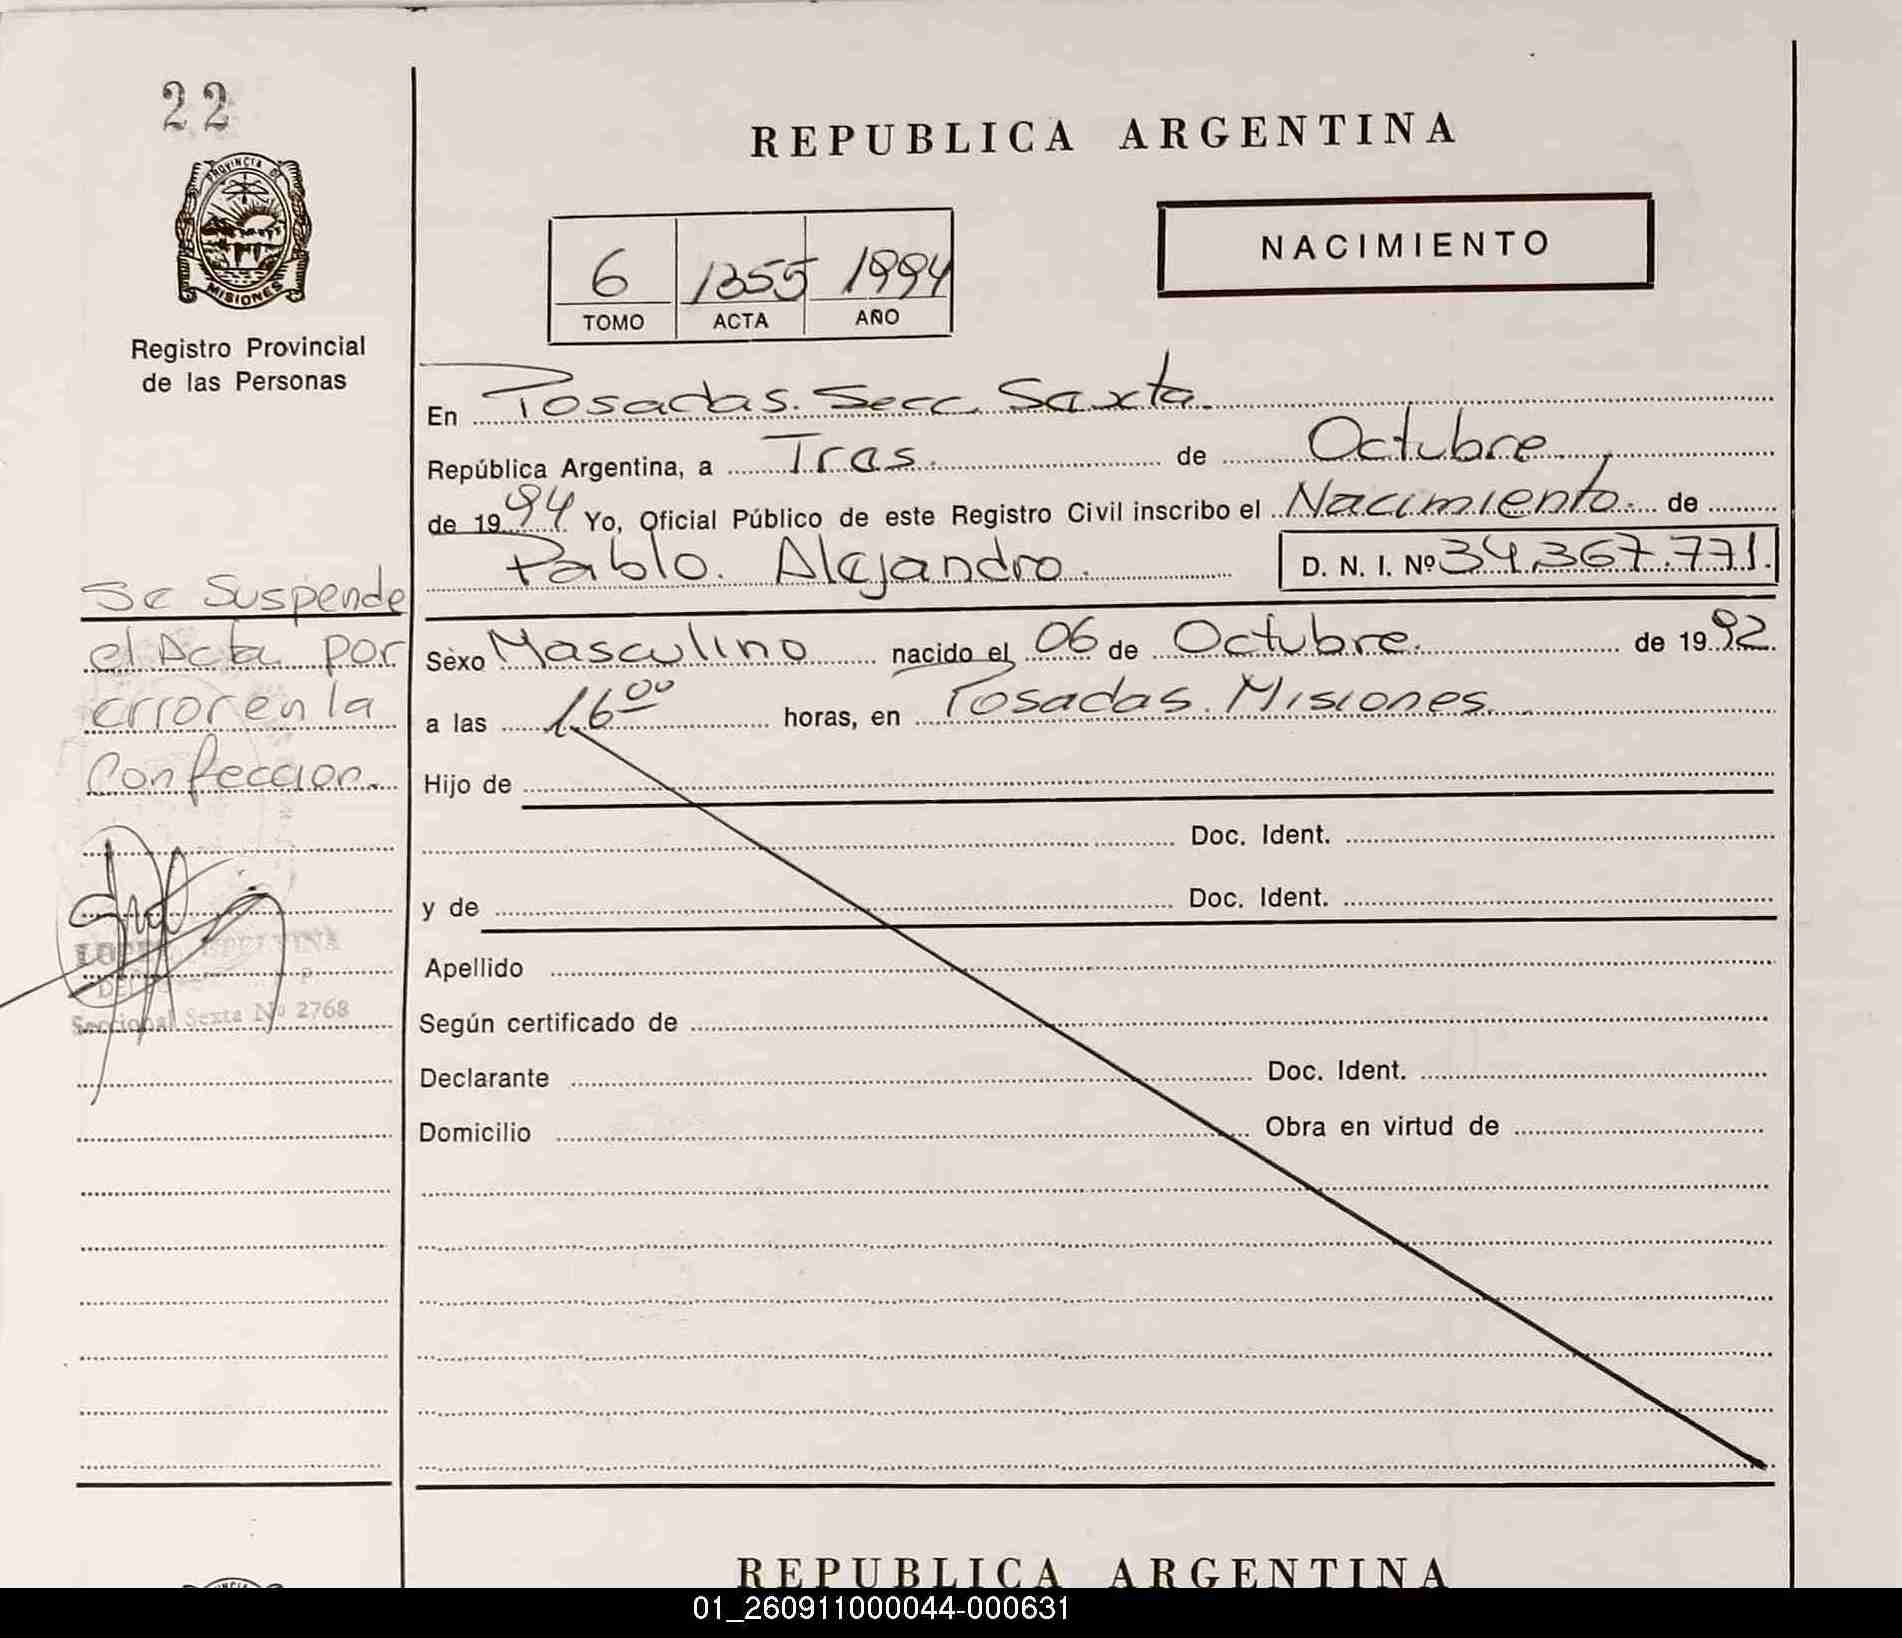 22
PROVINCIA DE
MISIONES
Registro Provincial
de las Personas
REPUBLICA ARGENTINA
NACIMIENTO
6 1355 1994
TOMO ACTA AÑO
En Posadas. Secc. Sexta.
República Argentina, a Tres. de Octubre.
de 1994 Yo, Oficial Público de este Registro Civil inscribo el Nacimiento. de
Pablo. Alejandro. D. N. I. Nº 34.367.771.
Sexo Masculino nacido el 06 de Octubre. de 1992.
a las 16 00 horas, en Posadas. Misiones.
Hijo de
Doc. Ident.
y de Doc. Ident.
Apellido
Según certificado de
Declarante Doc. Ident.
Domicilio Obra en virtud de
Se Suspende
el Acta por
error en la
Confeccion.
Seccional Sexta Nº 2768
REPUBLICA ARGENTINA
01_260911000044-000631